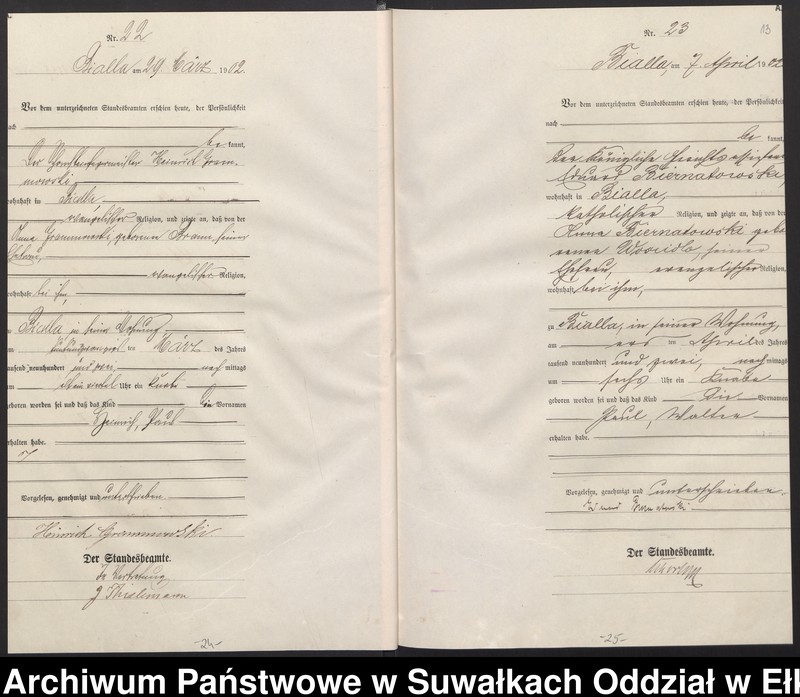 Nr. 22
Bialla am 29 März 1902.
Vor dem unterzeichneten Standesbeamten erschien heute, der Persönlichkeit
nach
be kannt,
Der Heinrich Gram-
mowski,
wohnhaft in Bialla,
evangelischer Religion, und zeigte an, daß von der
Anna Grammowski, geborenen Braun, seiner
Ehefrau,
evangelischer Religion,
wohnhaft bei ihm,
zu Bialla in seiner Wohnung
am ten März des Jahres
tausend neunhundert und zwei, nach mittags
um Uhr ein Knabe
geboren worden sei und daß das Kind die Vornamen
Heinrich, Paul
erhalten habe.
Vorgelesen, genehmigt und unterschrieben
Heinrich Grammowski
Der Standesbeamte.
In Vertretung
Thielemann
-24-
Nr. 23
13
Bialla, am 7. April 1902
Vor dem unterzeichneten Standesbeamten erschien heute, der Persönlichkeit
nach
be kannt,
Der Königliche
Eduard Biernatowski,
wohnhaft in Bialla,
katholischer Religion, und zeigte an, daß von der
Anna Biernatowski gebo-
renen seiner
Ehefrau, evangelischer Religion,
wohnhaft bei ihm,
zu Bialla, in seiner Wohnung,
am ten April des Jahres
tausend neunhundert und zwei, nach mittags
um sechs Uhr ein Knabe
geboren worden sei und daß das Kind die Vornamen
Paul, Walter
erhalten habe.
Vorgelesen, genehmigt und unterschrieben
Der Standesbeamte.
-25-
Archiwum Państwowe w Suwałkach Oddział w Eł